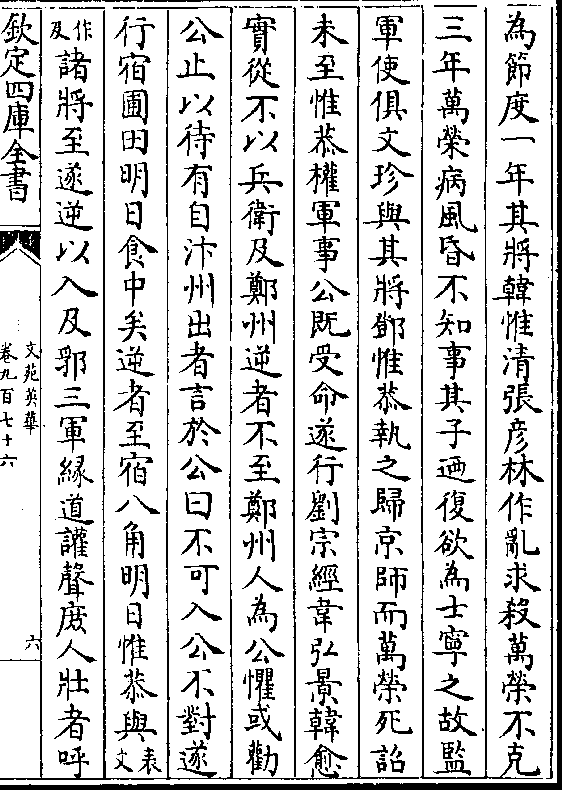 為節度一年其將韓惟清張彦林作亂求殺萬榮不克
三年萬榮病風昏不知事其子迺復欲為士寧之故監
軍使俱文珍與其將鄧惟恭執之歸京師而萬榮死詔
未至惟恭權軍事公既受命遂行劉宗經韋弘景韓愈
實從不以兵衛及鄭州逆者不至鄭州人為公懼或勸
公止以待有自汴州出者言於公曰不可入公不對遂
行宿圃田明日食中矣逆者至宿八角明日惟恭與表文
作及諸將至遂逆以入及郛三軍緣道讙聲庶人壯者呼
欽定四庫全書
文苑英華
卷九百七十六
六